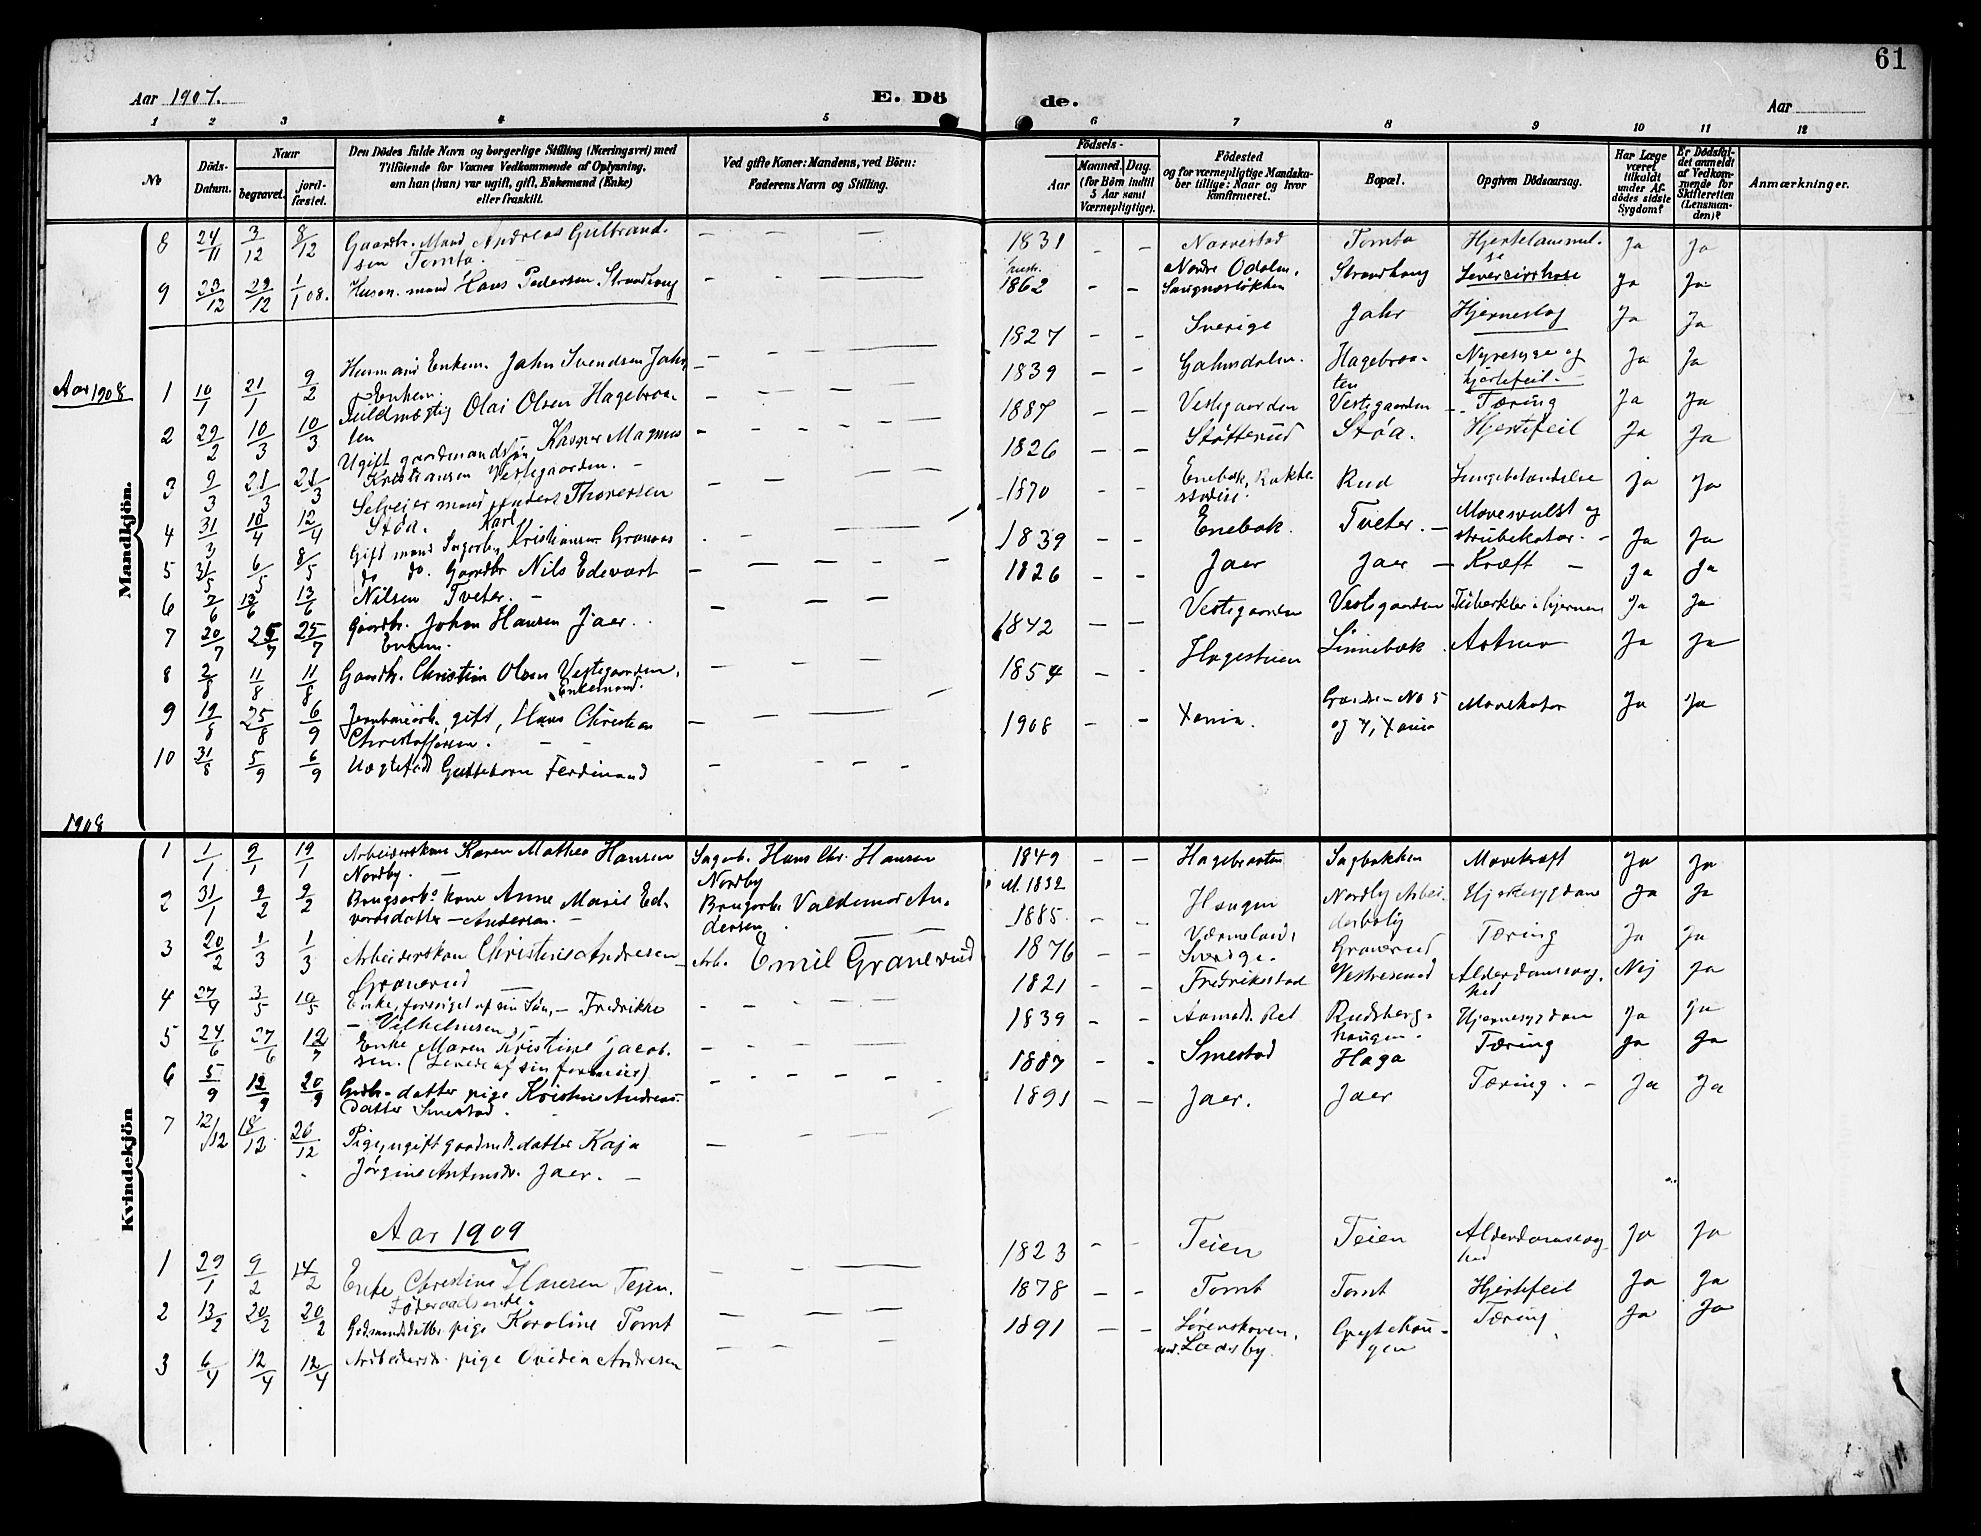 61
Aar 1907.
E. Dö
de.
Aar
1 2 3 4 5 6 7 8 9 10 11 12
Nr
Döds-Datum.
Naar
begravet.
jord-fæstet.
Den Dödes fulde Navn og borgerlige Stilling (Næringsvei) med
Tilföiende for Voxnes Vedkommende af Oplysning,
om han (hun) var ugift, gift, Enkemand (Enke)
eller fraskilt.
Ved gifte Koner: Mandens, ved Börn:
Faderens Navn og Stilling.
Födsels-
Aar
Maaned.
Dag.
(for Börn indtil
5 Aar samt
Værnepligtige).
Födested
og for værnepligtige Mandska-
ber tillige: Naar og hvor
konfirmeret.
Bopæl.
Opgiven Dödsaarsag.
Har Læge
været
tilkaldt
under Af-
dödes sidste
Sygdom?
Er Dödsfal-
det anmeldt
af Vedkom-
mende for
Skifteretten
(Lensman-
den)?
Anmærkninger.
Mandkjön.
8 24/11 3/12 8/12 Gaardbr. Mand Andreas Gulbrand-
sen Tomta. — — — — 1831 — — Narvestad Tomta Hjertelammel-
se Ja Ja
9 23/12 29/12 1/1 08. Husm. mand Hans Pedersen Strandhaug — — — 1862 — — Nordre Odalen. Strandhaug Levercirrhose Ja Ja
Aar 1908
1 10/1 21/1 9/2 Husmand Enkem. Jahn Svendsen Jahr — — — 1827 — — Sverige Jahr Hjerneslag Ja Ja
2 29/2 10/3 10/3 Enkem.
Fuldmægtig Olai Olsen Hagebraa-
ten — — — 1839 — — Hagebraa-
ten Nyresyge og
hjertefeil. — Ja Ja
3 9/3 21/3 21/3 Ugift gaardmandssøn Kasper Magnus
Kristiansen Vestgaarden. — 1887 — — Vestgaarden Vestgaarden Tæring Ja Ja
4 31/3 10/4 12/4 Selveier mand Anders Thoresen
Støa. — — 1826 — — Støtterud Støa. Hjertefeil Ja Ja
5 31/5 6/5 8/5 Gift mand Sagarb. Karl Kristiansen 1870 — — Enebak, Rakke-
stad Rud Lungebetændelse Ja Ja
6 7/6 13/6 13/6 do do. Gaardbr Nils Edevart
Nilsen Tveter. — 1839 — — Enebak. Tveter. — Mavesvulst og
strubekatar. — Ja Ja
7 20/7 25/7 25/7 Gaardbr. Johan Hansen Jaer.
Enkem. — — — 1826 — — Jaer Jaer — Kræft — Ja Ja
8 2/8 11/8 11/8 Gaardbr. Christian Olsen Vestgaarden,
Enkemand. — — — 1842 — — Vestgaarden Vestgaarden Tuberkler i hjernen Ja Ja
9 19/8 25/8 6/9 Jernbanearb. gift, Hans Christian
Christoffersen. — — — 1854 — — Hagestuen Linnebak Astma Ja Ja
10 31/8 5/9 6/9 Uægtefødt Guttebarn Ferdinand — — — — 1908 — — Xania. No 5
og 7, Xania Mavekatar Ja Ja
1908
Kvindekjön
1 1/1 9/1 19/1 Arbeiderskone Karen Mathea Hansen
Nordby. — Sagarb. Hans Chr. Hansen
Nordby 1849 — — Hagebraaten Sagbakken Mavekræft Ja Ja
M. 1832
2 31/1 9/2 9/2 Brugsarb.s kone Anne Marie Ed-
vardsdatter — Andersen. — Brugarb. Valdemar An-
dersen. 1885 — — Haugen Nordby Arbei-
derbolig Hjertesygdom Ja Ja
3 20/2 1/3 1/3 Arbeiderskone Christine Andresen
Granerud — Arb. Emil Granerud 1876 — — Værmeland,
Sverige. Granerud Tæring Ja Ja
4 27/4 3/5 10/5 Enke, forsørget af sin Søn, — Fredrikke
— Vilhelmsen — — — 1821 — — Fredrikstad Vestresund Alderdomssvag-
hed Nej Ja
5 24/6 27/6 12/7 Enke Maren Kristine Jacob-
sen. (Levede af sin formue). — — — 1839 — — Rudsberg-
haugen. Hjernesygdom Ja Ja
6 5/9 12/9 20/9 Gdbr. datter pige Kristine Andreas-
datter Smestad. — — — 1887 — — Smestad Haga Tæring Ja Ja
7 12/12 18/12 20/12 Pige, ugift gaardmd. datter Kaja
Jørgine Antonsdr. Jaer. — — — 1891 — — Jaer. Jaer Tæring. — Ja Ja
Aar 1909
1 29/1 9/2 14/2 Enke Christine Hansen Tejen.
Føderaadsenke. — — — 1823 — — Teien Teien Alderdomssvag-
hed Ja Ja
2 13/2 20/2 20/2 Gdmandsdatter pige Karoline Tomt — — — 1878 — — Tomt Tomt Hjertefeil Ja Ja
3 6/4 12/4 12/4 Arbeidersdr. pige Ovidia Andresen — — — 1891 — — Sørenskoven,
Ladeby. Tæring Ja Ja